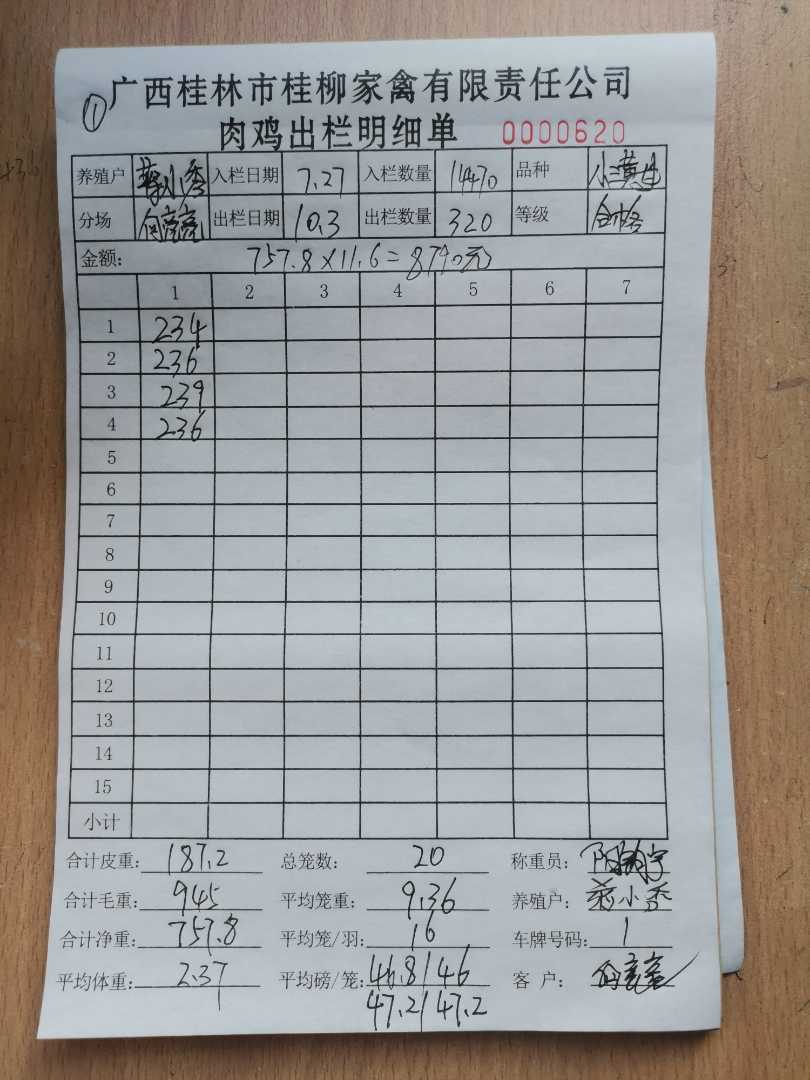 ① 广西桂林市桂柳家禽有限责任公司
肉鸡出栏明细单 0000620
养殖户 蒋小秀 入栏日期 7.27 入栏数量 11470 品种 小黄
分场 出栏日期 10.3 出栏数量 320 等级 合格
金额: 757.8×11.6=8790元
1 2 3 4 5 6 7
1 234
2 236
3 239
4 236
5
6
7
8
9
10
11
12
13
14
15
小计
合计皮重: 187.2 总笼数: 20 称重员:
合计毛重: 945 平均笼重: 9.36 养殖户: 蒋小秀
合计净重: 757.8 平均笼/羽: 16 车牌号码: 1
平均体重: 2.37 平均磅/笼: 46.8/46 客 户:
47.2/47.2